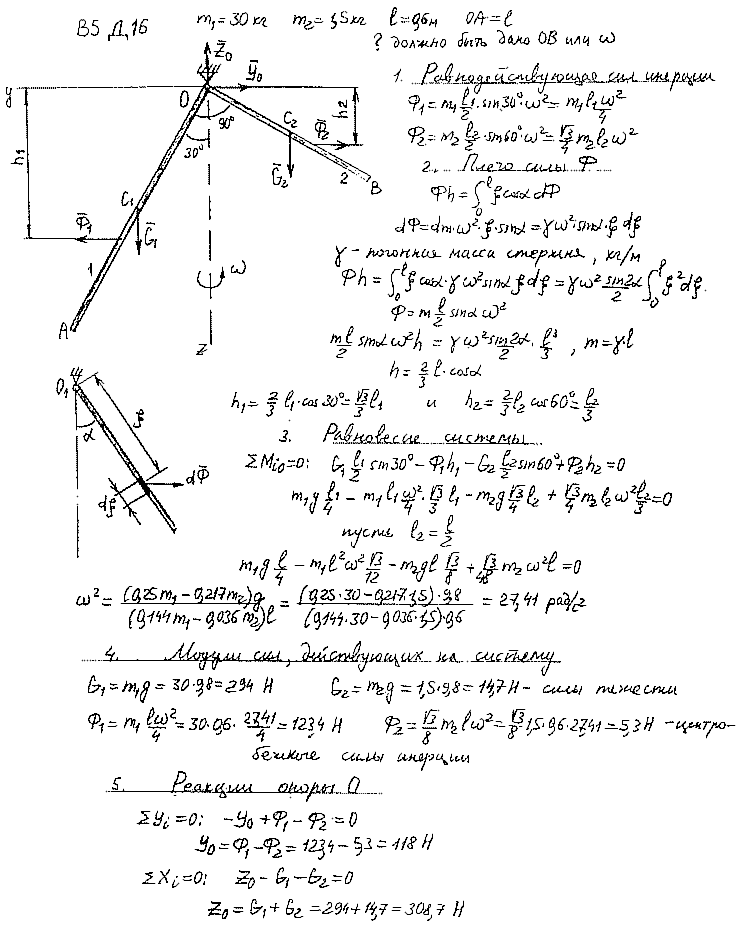 В5 Д.16 m₁=30 кг m₂=1,5 кг l=0,6м OA=l
? должно быть дано OB или ω
Z̄₀
Ȳ₀
y
O
C₂
h₂
90°
Φ̄₂
30°
h₁
Ḡ₂
2
B
C₁
Φ̄₁
Ḡ₁
1
ω
A
z
1. Равнодействующая сил инерции
Φ₁=m₁ l₁/2·sin30°·ω²=m₁l₁ ω²/4
Φ₂=m₂ l₂/2·sin60°·ω²=√3/4 m₂l₂ω²
2. Плечо силы Φ
Φh=∫₀ˡ ξcosα dΦ
dΦ=dm·ω²·ξ·sinα=γω²·sinα·ξ·dξ
γ - погонная масса стержня, кг/м
Φh=∫₀ˡ ξcosα·γω²sinα ξdξ=γω² sin2α/2 ∫₀ˡ ξ²dξ.
Φ=m l/2 sinα ω²
ml/2 sinα ω²h = γω² sin2α/2 · l³/3, m=γ·l
h=2/3 l·cosα
O₁
α
ξ
dΦ̄
dξ
h₁=2/3 l₁·cos30°=√3/3 l₁ и h₂=2/3 l₂cos60°=l₂/3
3. Равновесие системы
ΣMᵢ₀=0: G₁ l₁/2 sin30°-Φ₁h₁-G₂ l₂/2 sin60°+Φ₂h₂=0
m₁g l₁/4 - m₁l₁ ω²/4·√3/3 l₁ - m₂g √3/4 l₂ + √3/4 m₂l₂ω² l₂/3=0
пусть l₂=l/2
m₁g l/4 - m₁l²ω² √3/12 - m₂gl √3/8 + √3/48 m₂ω²l=0
ω²= (0,25m₁-0,217m₂)g/(0,144m₁-0,036m₂)l = (0,25·30-0,217·1,5)·9,8/(0,144·30-0,036·1,5)·0,6 = 27,41 рад/с
4. Модули сил, действующих на систему
G₁=m₁g=30·9,8=294 Н G₂=m₂g=1,5·9,8=14,7 Н - силы тяжести
Φ₁=m₁ lω²/4=30·0,6·27,41/4=123,4 Н Φ₂=√3/8 m₂lω²=√3/8 1,5·0,6·27,41=5,3 Н - центро-
бежные силы инерции
5. Реакции опоры O
ΣYᵢ=0: -Y₀+Φ₁-Φ₂=0
Y₀=Φ₁-Φ₂=123,4-5,3=118 Н
ΣXᵢ=0: Z₀-G₁-G₂=0
Z₀=G₁+G₂=294+14,7=308,7 Н